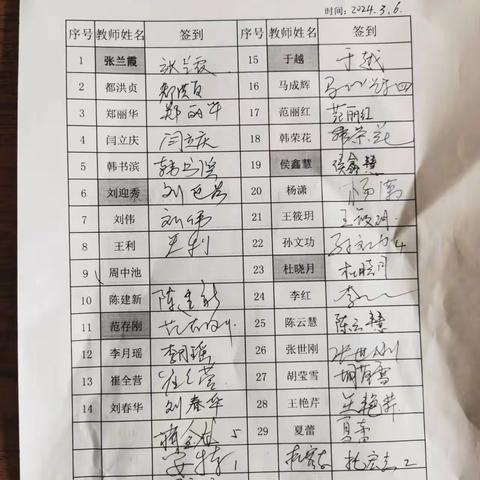 时间：2024.3.6.
序号 教师姓名 签到 序号 教师姓名 签到
1 张兰霞 张兰霞 15 于越 于越
2 都洪贞 都洪贞 16 马成辉
3 郑丽华 郑丽华 17 范丽红 范丽红
4 闫立庆 闫立庆 18 韩荣花 韩荣花
5 韩书滨 韩书滨 19 侯鑫慧 侯鑫慧
6 刘迎秀 刘迎秀 20 杨潇 杨潇
7 刘伟 刘伟 21 王筱玥 王筱玥
8 王利 王利 22 孙文功 孙文功 4
9 周中池 23 杜晓月 杜晓月
10 陈建新 陈建新 24 李红 李
11 范存刚 范存刚 25 陈云慧 陈云慧
12 李月瑶 李月瑶 26 张世刚 张世刚
13 崔全营 崔全营 27 胡莹雪 胡莹雪
14 刘春华 刘春华 28 王艳芹 王艳芹
5 29 夏蕾 夏蕾
1 2